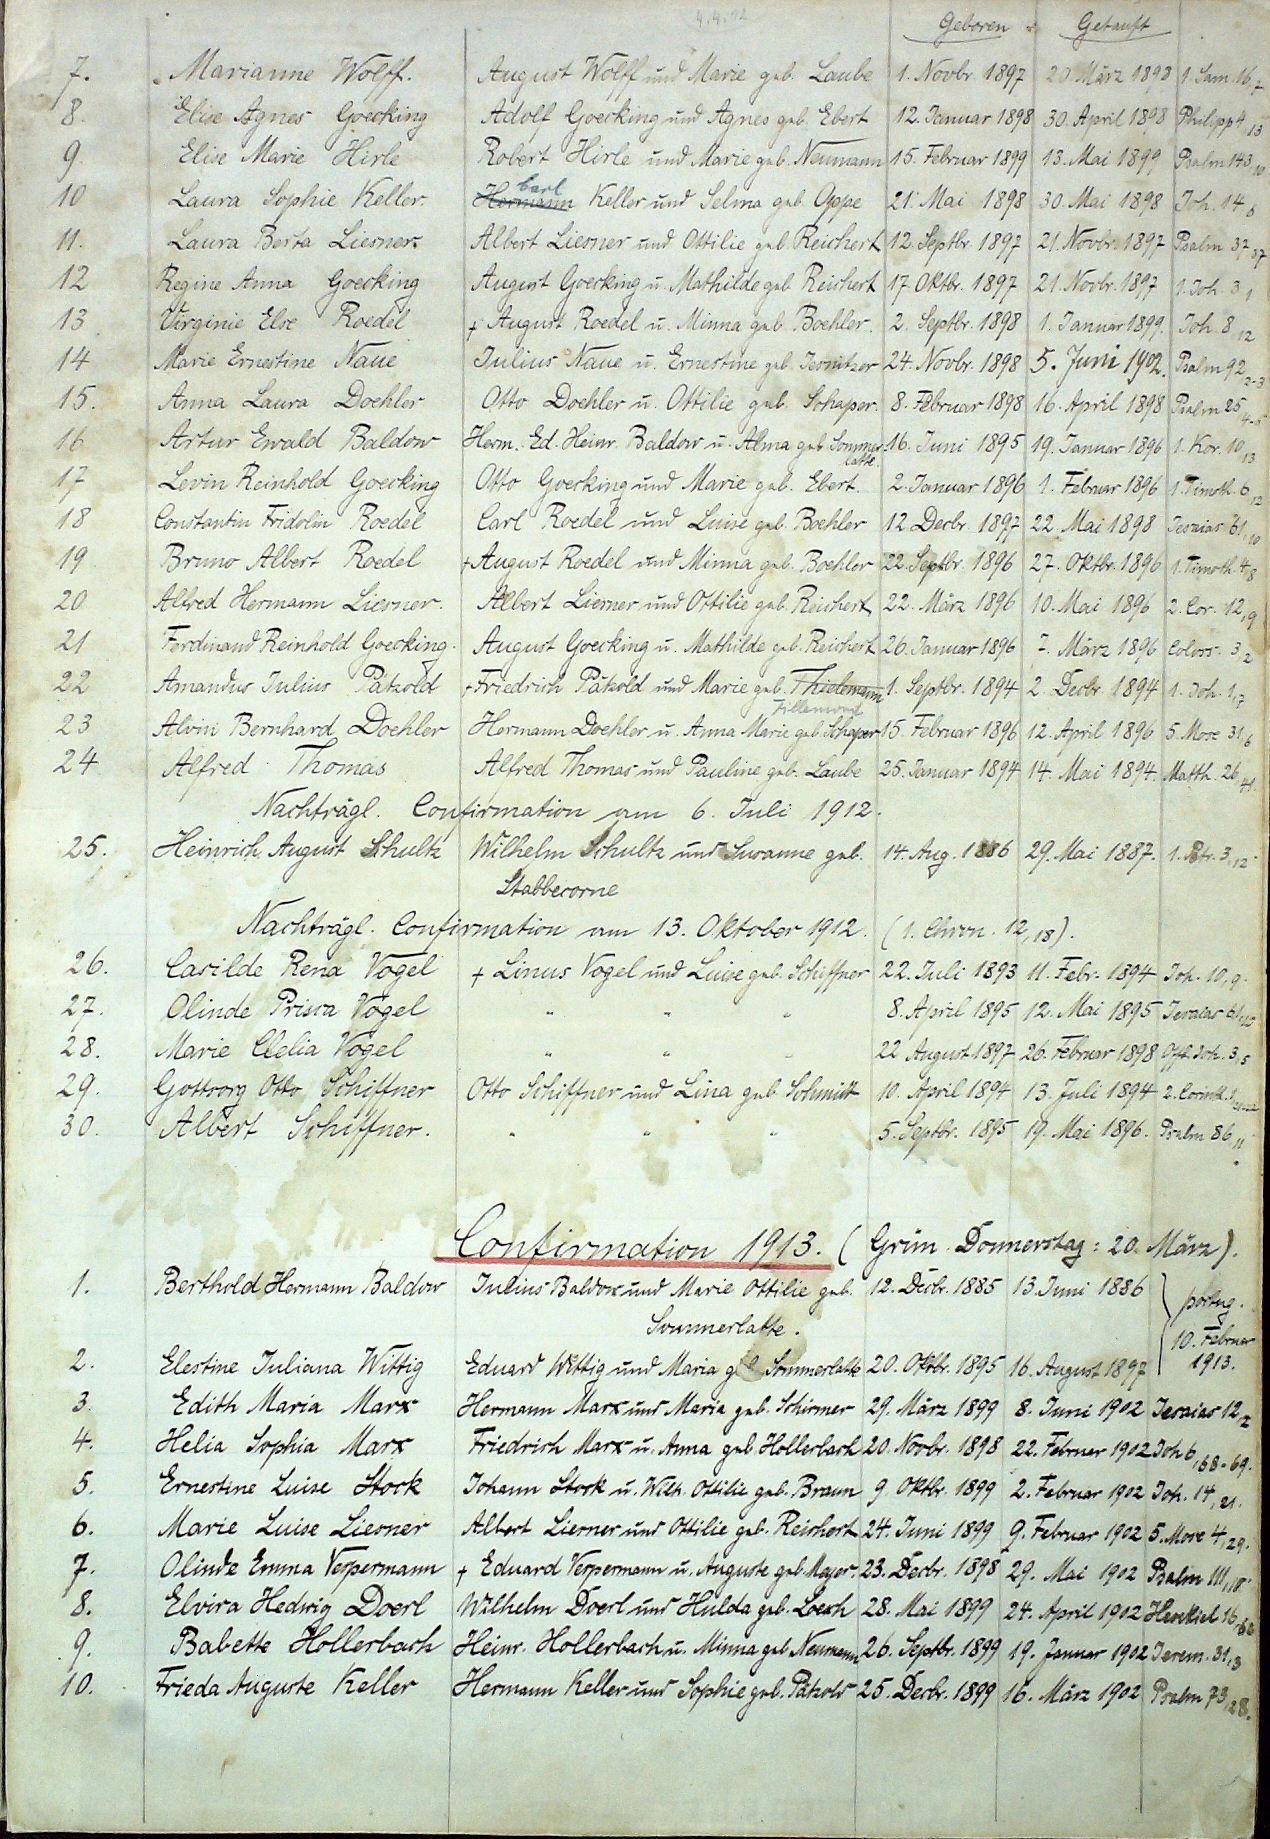 4.4.12
Geboren Getauft
7. Marianne Wolff. August Wolff und Marie geb. Laube 1. Novbr. 1897 20. März 1898 1. Sam. 16,7
8. Elise Agnes Goecking Adolf Goecking und Agnes geb. Ebert 12. Januar 1898 30. April 1898 Philipp 4,13
9. Elise Marie Hirle Robert Hirle und Marie geb. Neumann 15. Februar 1899 13. Mai 1899 Psalm 143,10
10 Laura Sophie Keller. Hermann Carl Keller und Selma geb. Oppe 21. Mai 1898 30. Mai 1898 Joh. 14,6
11. Laura Berta Liesner Albert Liesner und Ottilie geb. Reichert 12. Septbr. 1897 21. Novbr. 1897 Psalm 37,37
12 Regine Anna Goecking August Goecking u. Mathilde geb. Reichert 17. Oktbr. 1897 21. Novbr. 1897 1. Joh. 3,1
13 Virginie Else Roedel + August Roedel u. Minna geb. Boehler. 2. Septbr. 1898 1. Januar 1899. Joh. 8,12
14 Marie Ernestine Naue Julius Naue u. Ernestine geb. Jesnitzer 24. Novbr. 1898 5. Juni 1902. Psalm 92,2-3
15. Anna Laura Doehler Otto Doehler u. Ottilie geb. Schaper. 8. Februar 1898 16. April 1898 Psalm 25,4-5
16 Artur Ewald Baldow Herm. Ed. Heinr. Baldow u. Alma geb Sommerlatte. 16. Juni 1895 19. Januar 1896 1. Kor. 10,13
17 Levin Reinhold Goecking Otto Goecking und Marie geb. Ebert. 2. Januar 1896 1. Februar 1896 1. Timoth. 6,12
18 Constantin Fridolin Roedel Carl Roedel und Luise geb. Boehler 12 Decbr. 1897 22. Mai 1898 Jesaias 61,10
19 Bruno Albert Roedel + August Roedel und Minna geb. Boehler 22. Septbr. 1896 27. Oktbr. 1896 1. Timoth. 4,8
20 Alfred Hermann Liesner. Albert Liesner und Ottilie geb. Reichert 22. März 1896 10. Mai 1896 2. Cor. 12,9
21 Ferdinand Reinhold Goecking. August Goecking u. Mathilde geb. Reichert 26. Januar 1896 7. März 1896 Coloss. 3,2
22 Amandus Julius Pätzold + Friedrich Pätzold und Marie geb. Thielemann 1. Septbr. 1894 2. Decbr. 1894 1. Joh. 1,7
23 Alvin Bernhard Doehler Hermann Doehler u. Anna Marie geb Schaper 15. Februar 1896 12. April 1896 5. Mose 31,6
24 Alfred Thomas Alfred Thomas und Pauline geb. Laube 25. Januar 1894 14. Mai 1894. Matth. 26,41.
Nachträgl. Confirmation am 6. Juli 1912.
25. Heinrich August Schultz Wilhelm Schultz und Susanne geb. 14. Aug. 1886 29. Mai 1887. 1. Petr. 3,12
Stabbecorne
Nachträgl. Confirmation am 13. Oktober 1912. (1. Chron. 12,18).
26. Casilde Rena Vogel + Linus Vogel und Luise geb. Schiffner 22. Juli 1893 11. Febr. 1894 Joh. 10,9.
27. Olinde Prisca Vogel " " " 8. April 1895 12. Mai 1895 Jesaias 61,10
28. Marie Clelia Vogel " " " 22 August 1897 26. Februar 1898 Off. Joh. 3,5
29. Gottvorg Otto Schiffner Otto Schiffner und Lina geb Schmidt 10. April 1894 13. Juli 1894 2. Corinth.
30. Albert Schiffner. " " " 5. Septbr. 1895 19. Mai 1896. Psalm 86,11
Confirmation 1913. (Grün Donnerstag: 20. März).
1. Berthold Hermann Baldow Julius Baldow und Marie Ottilie geb. 12. Decbr. 1885 13. Juni 1886 portug.
Sommerlatte. 10. Februar
2. Elestine Juliana Wittig Eduard Wittig und Maria geb. Sommerlatte 20. Oktbr. 1895 16. August 1897 1913.
3. Edith Maria Marx Hermann Marx und Maria geb. Schirmer 29. März 1899 8. Juni 1902 Jesaias 12,2
4. Helia Sophia Marx Friedrich Marx u. Anna geb Hollerbach 20. Novbr. 1898 22. Februar 1902 Joh 6,68-69.
5. Ernestine Luise Stock Johann Stock u. Wilh. Ottilie geb. Braun 9 Oktbr. 1899 2. Februar 1902 Joh. 14,21.
6. Marie Luise Liesner Albert Liesner und Ottilie geb. Reichert 24. Juni 1899 9. Februar 1902 5. Mose 4,29.
7. Olinde Emma Vespermann + Eduard Vespermann u. Auguste geb. Meyer. 23. Decbr. 1898 29. Mai 1902 Psalm 111,10
8. Elvira Hedwig Doerl Wilhelm Doerl und Hulda geb. Loesch 28. Mai 1899 24. April 1902 Hesekiel 16,60
9. Babette Hollerbach Heinr. Hollerbach u. Minna geb Neumann 26. Septbr. 1899 19. Januar 1902 Jerem. 31,3
10. Frieda Auguste Keller Hermann Keller und Sophie geb. Pätzold 25. Decbr. 1899 16. März 1902 Psalm 73,28.